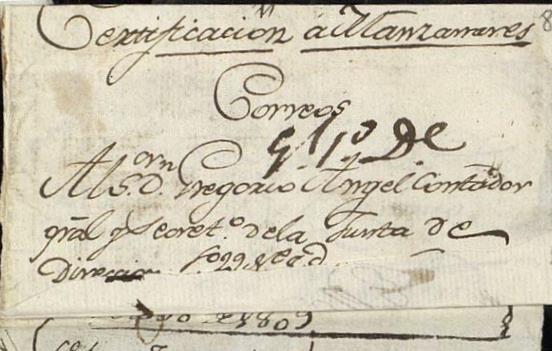 Certificacion á Manzanares
8
Correos
De
Al S.or D. Gregorio Angel Contador
gral y Secret.o de la Junta de
Direccion
de 1809